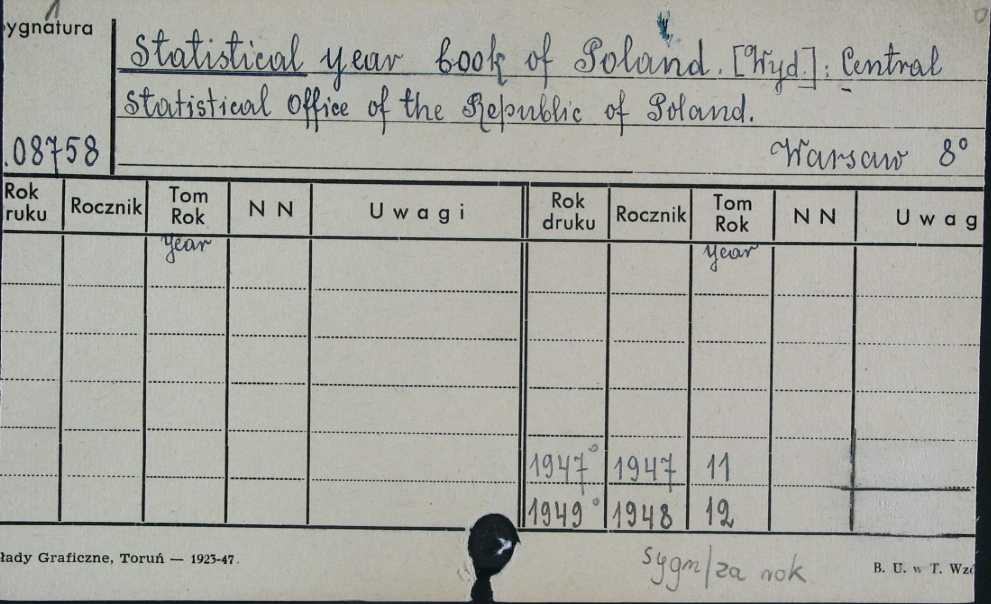 1
ygnatura
Statistical year book of Poland. [Wyd.]: Central
Statistical Office of the Republic of Poland.
.08758
Warsaw 8°
Rok ruku Rocznik Tom Rok N N Uwagi Rok druku Rocznik Tom Rok N N Uwag
year year
1947° 1947 11
1949° 1948 12
łady Graficzne, Toruń — 1923-47.
sygn/za rok
B. U. w T. Wzó